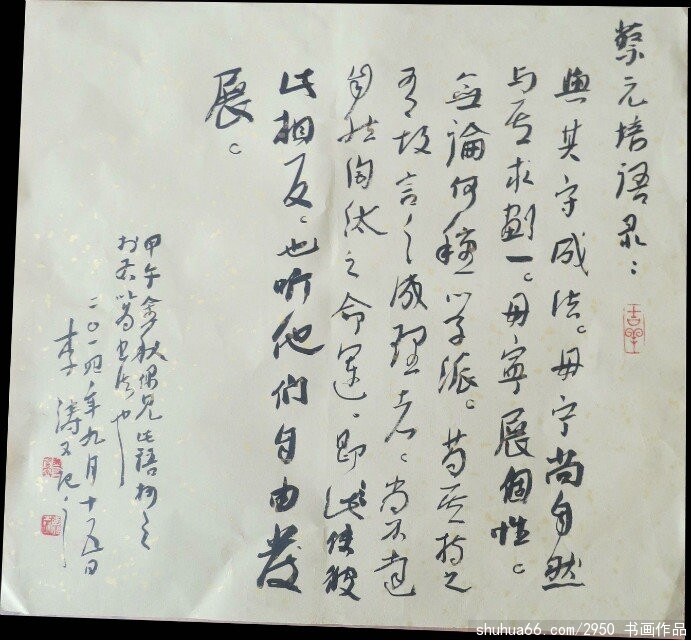 蔡元培语录：
與其守成法。毋宁尚自然
与其求劃一。毋寧展個性。
無論何種学派。苟其持之
有故言之成理者。尚不達
自然淘汰之命運。即使彼
此相反。也听他们自由發
展。
甲午金秋偶見此語抄之
二〇一四年九月十五日
李涛又记
shuhua66.com/2950 书画作品